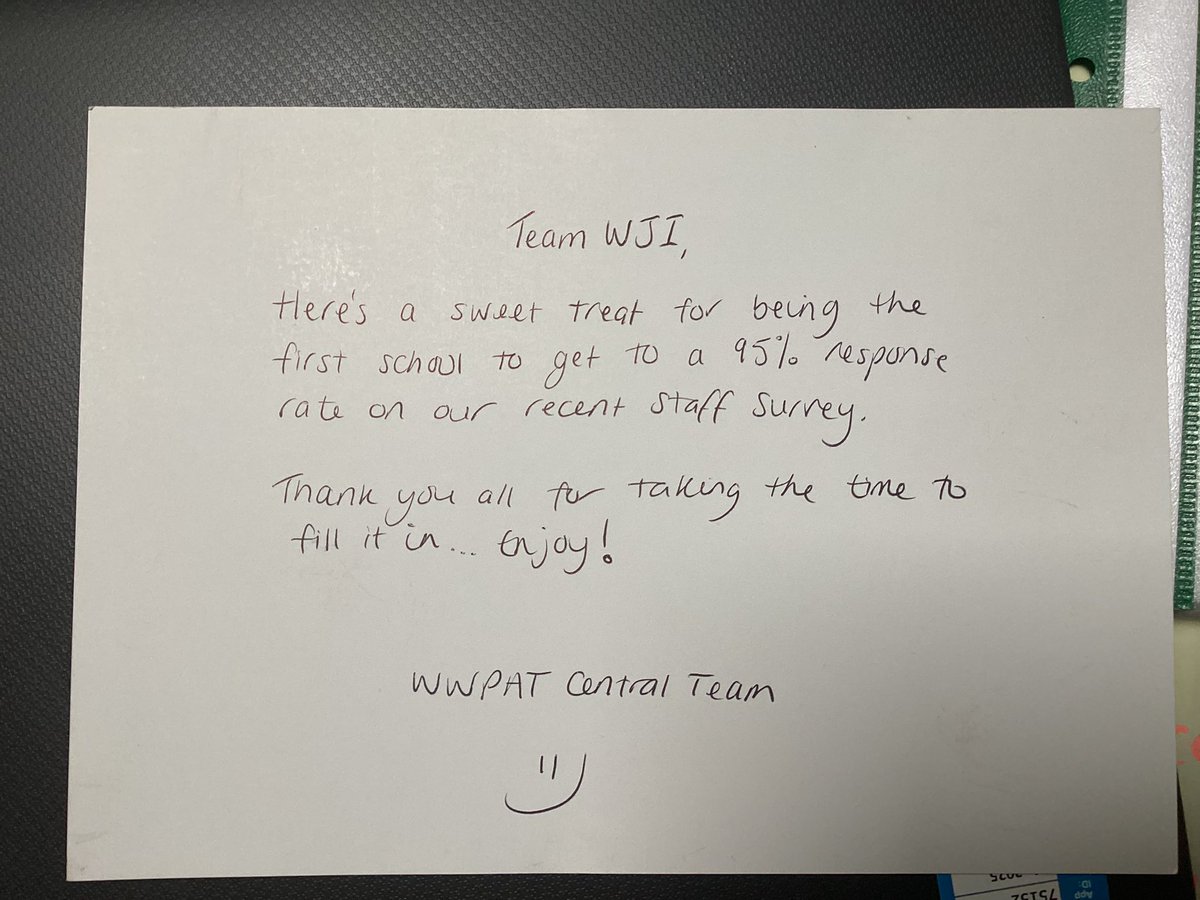 Team WJI,
Here's a sweet treat for being the
first school to get to a 95% response
rate on our recent staff survey.
Thank you all for taking the time to
fill it in... Enjoy!
WWPAT Central Team
App
ID:
75152
2025